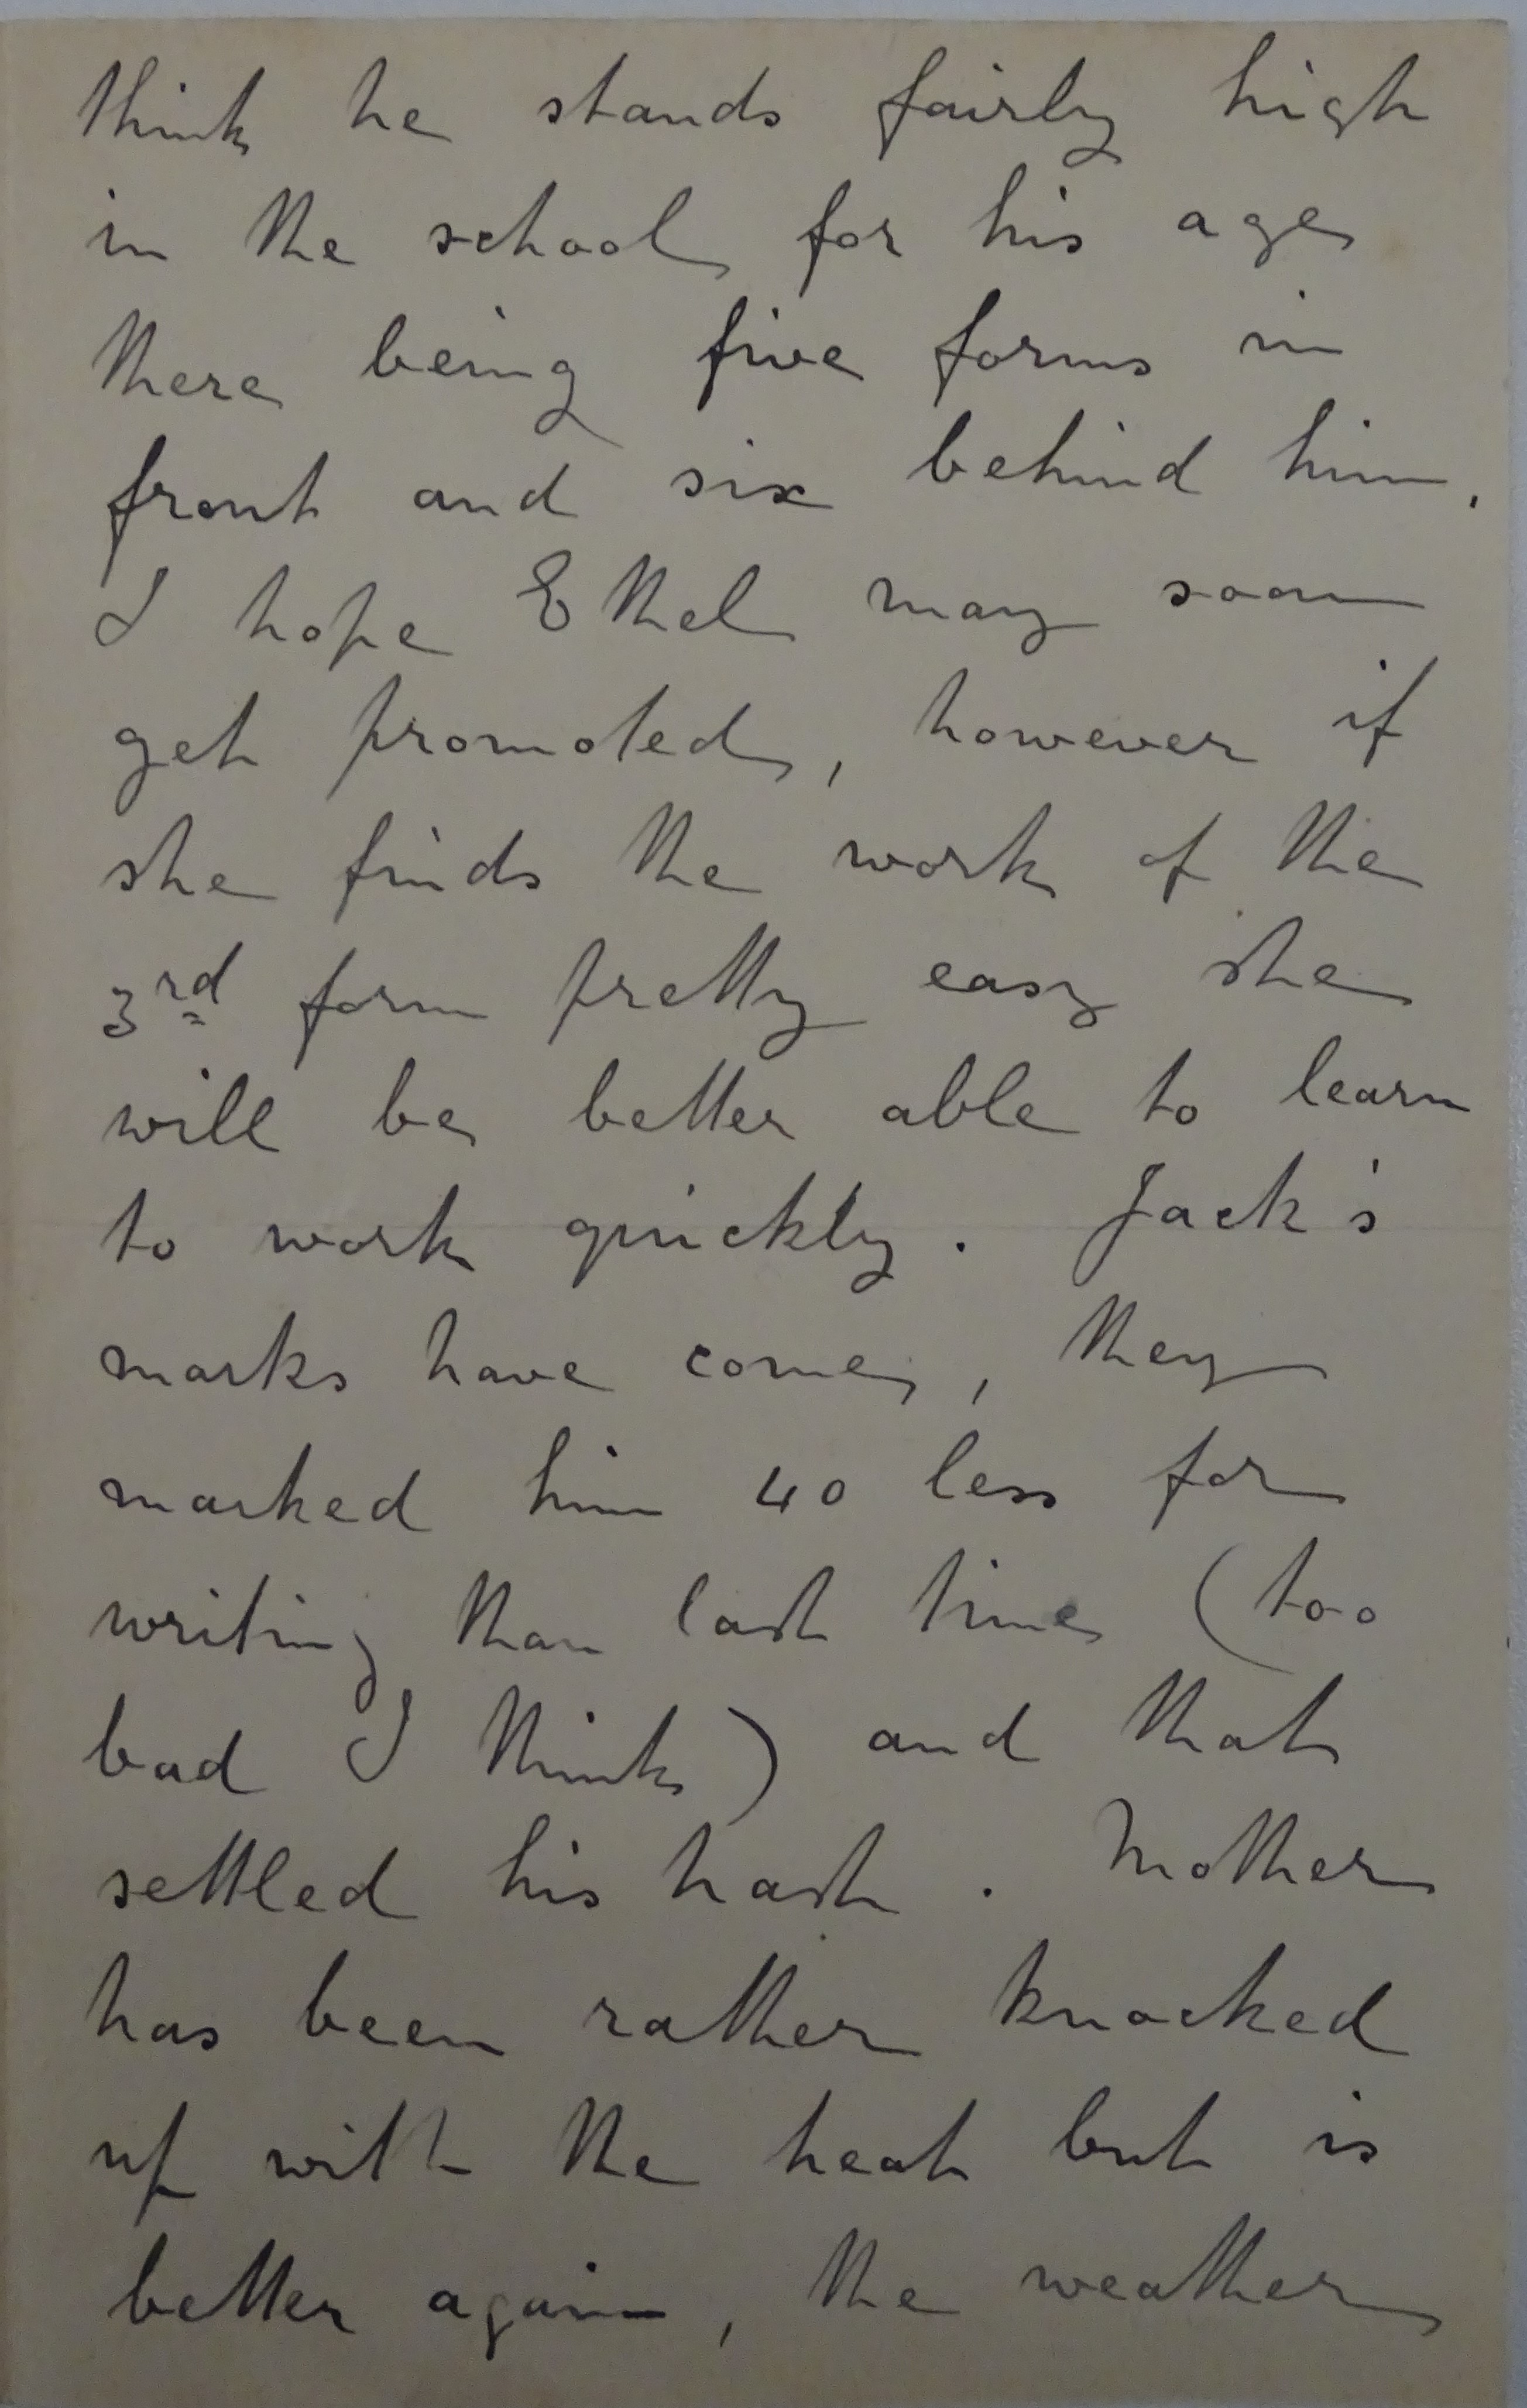 think he stands fairly high
in the school for his age
there being five forms in
front and six behind him.
I hope Ethel may soon
get promoted, however if
she finds the work of the
3rd form pretty easy she
will be better able to learn
to work quickly. Jack's
marks have come, they
marked him 40 less for
writing than last time (too
bad I think) and that
settled his hash. Mother
has been rather knocked
up with the heat but is
better again, the weather